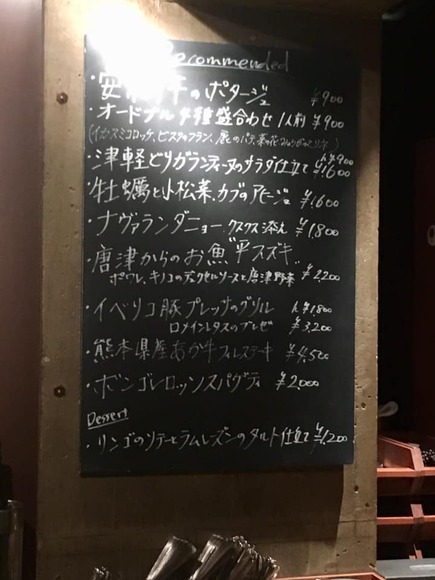 Recommended
・安のポタージュ ¥900
・オードブル 4種盛合わせ 1人前 ¥900
(イカスミコロッケ、ピスタチオフラン、鹿のパテ、菜の花
・津軽どりガランティーヌのサラダ仕立て h ¥900
¥1,600
・牡蠣と小松菜、カブのアヒージョ ¥1,600
・ナヴァランダニョー クスクス添え ¥1,800
・唐津からのお魚"平スズキ"
ポワレ、キノコのデュクセルソースと唐津野菜 ¥2,200
・イベリコ豚プレッサのグリル h ¥1,800
ロメインレタスのブレゼ ¥3,200
・熊本県産あか牛フィレステーキ ¥4,500
・ボンゴレロッソスパゲティ ¥2,000
Dessert
・リンゴのソテーとラムレーズンのタルト仕立て ¥1,200